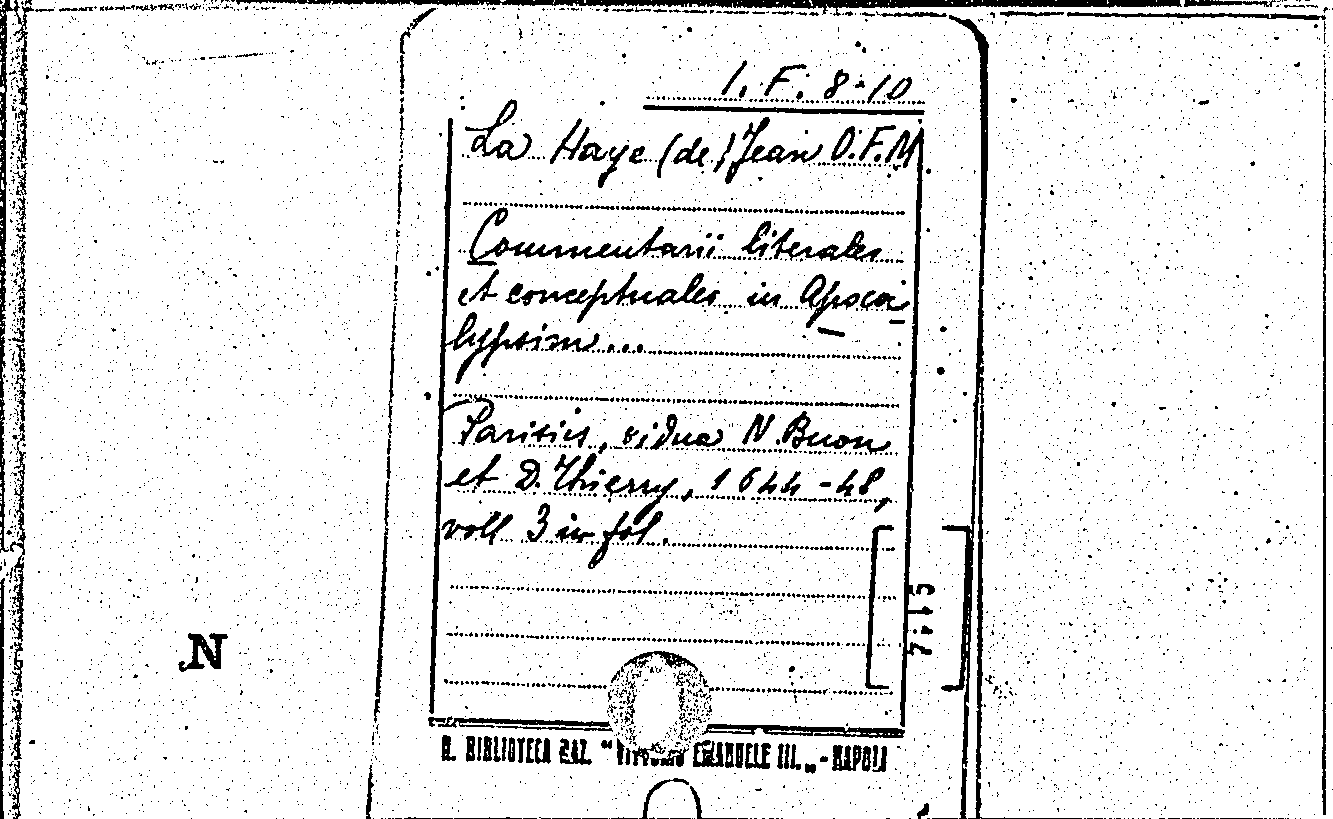 1. F. 8-10
La Haye (de) Jean O.F.M
Commentarii literales
et conceptuales in Apoca
lypsim...
Parisiis, vidua N. Buon
et D. Thierry, 1644-48,
voll 3 in fol.
N
R. BIBLIOTECA NAZ. "VITTORIO EMANUELE III." - NAPOLI